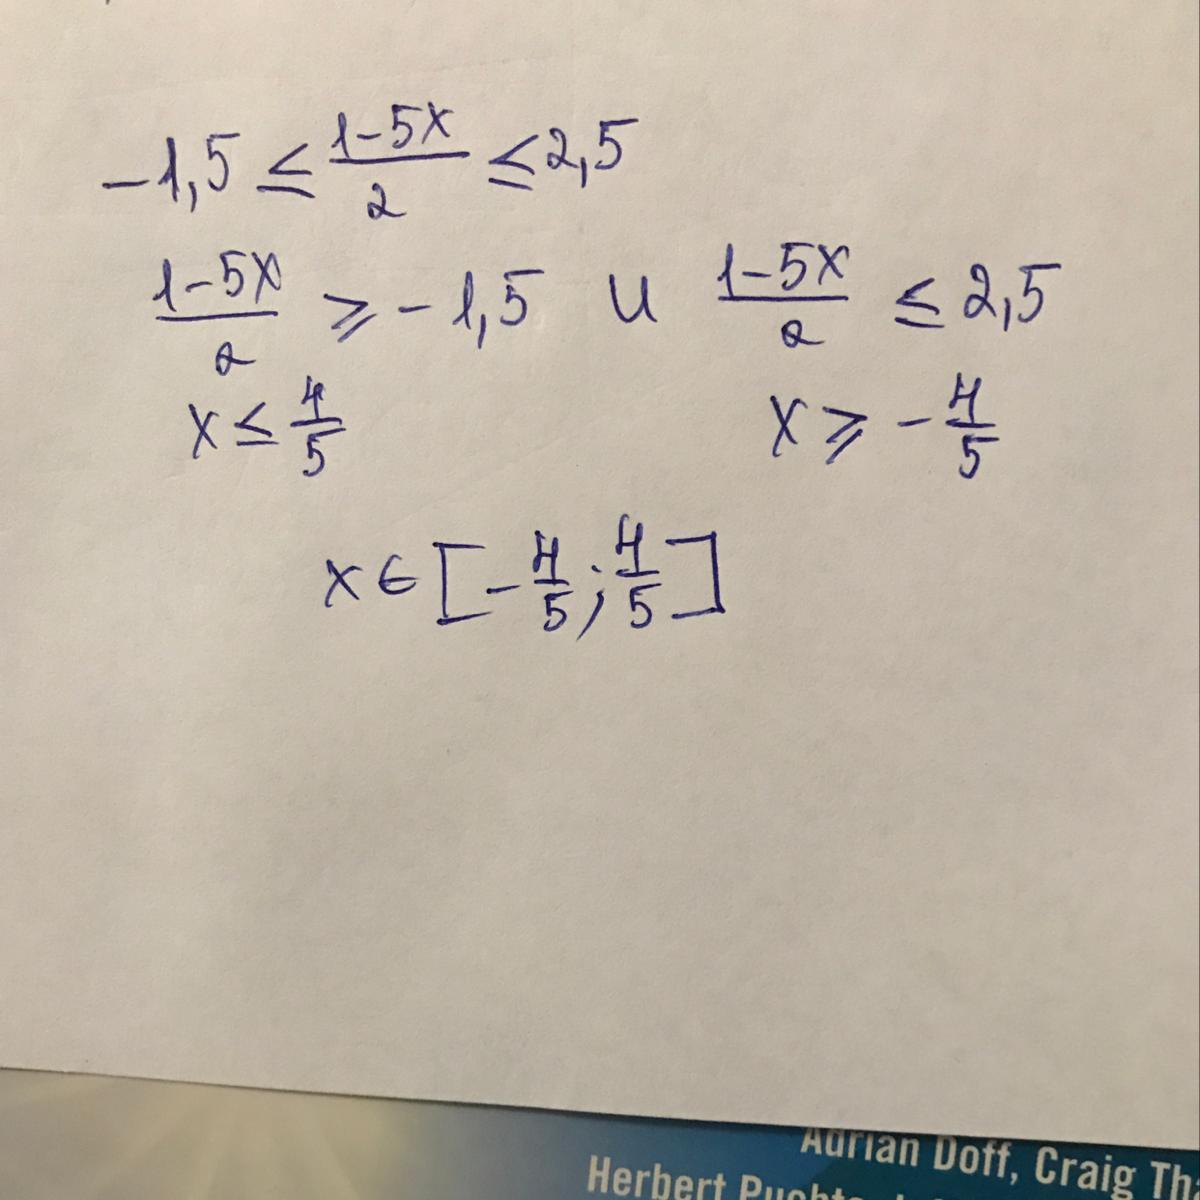 -1,5 ≤ (1-5x)/2 ≤ 2,5
(1-5x)/2 ≥ -1,5 и (1-5x)/2 ≤ 2,5
x ≤ 4/5 x ≥ -4/5
x ∈ [-4/5; 4/5]
Adrian Doff, Craig Th
Herbert